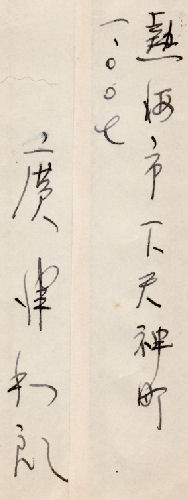 熱海市下天神町
一、〇〇七
廣津和郎